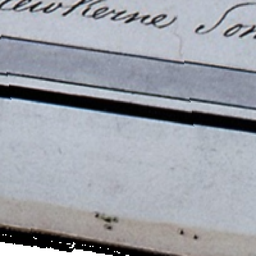 ewkerne Som